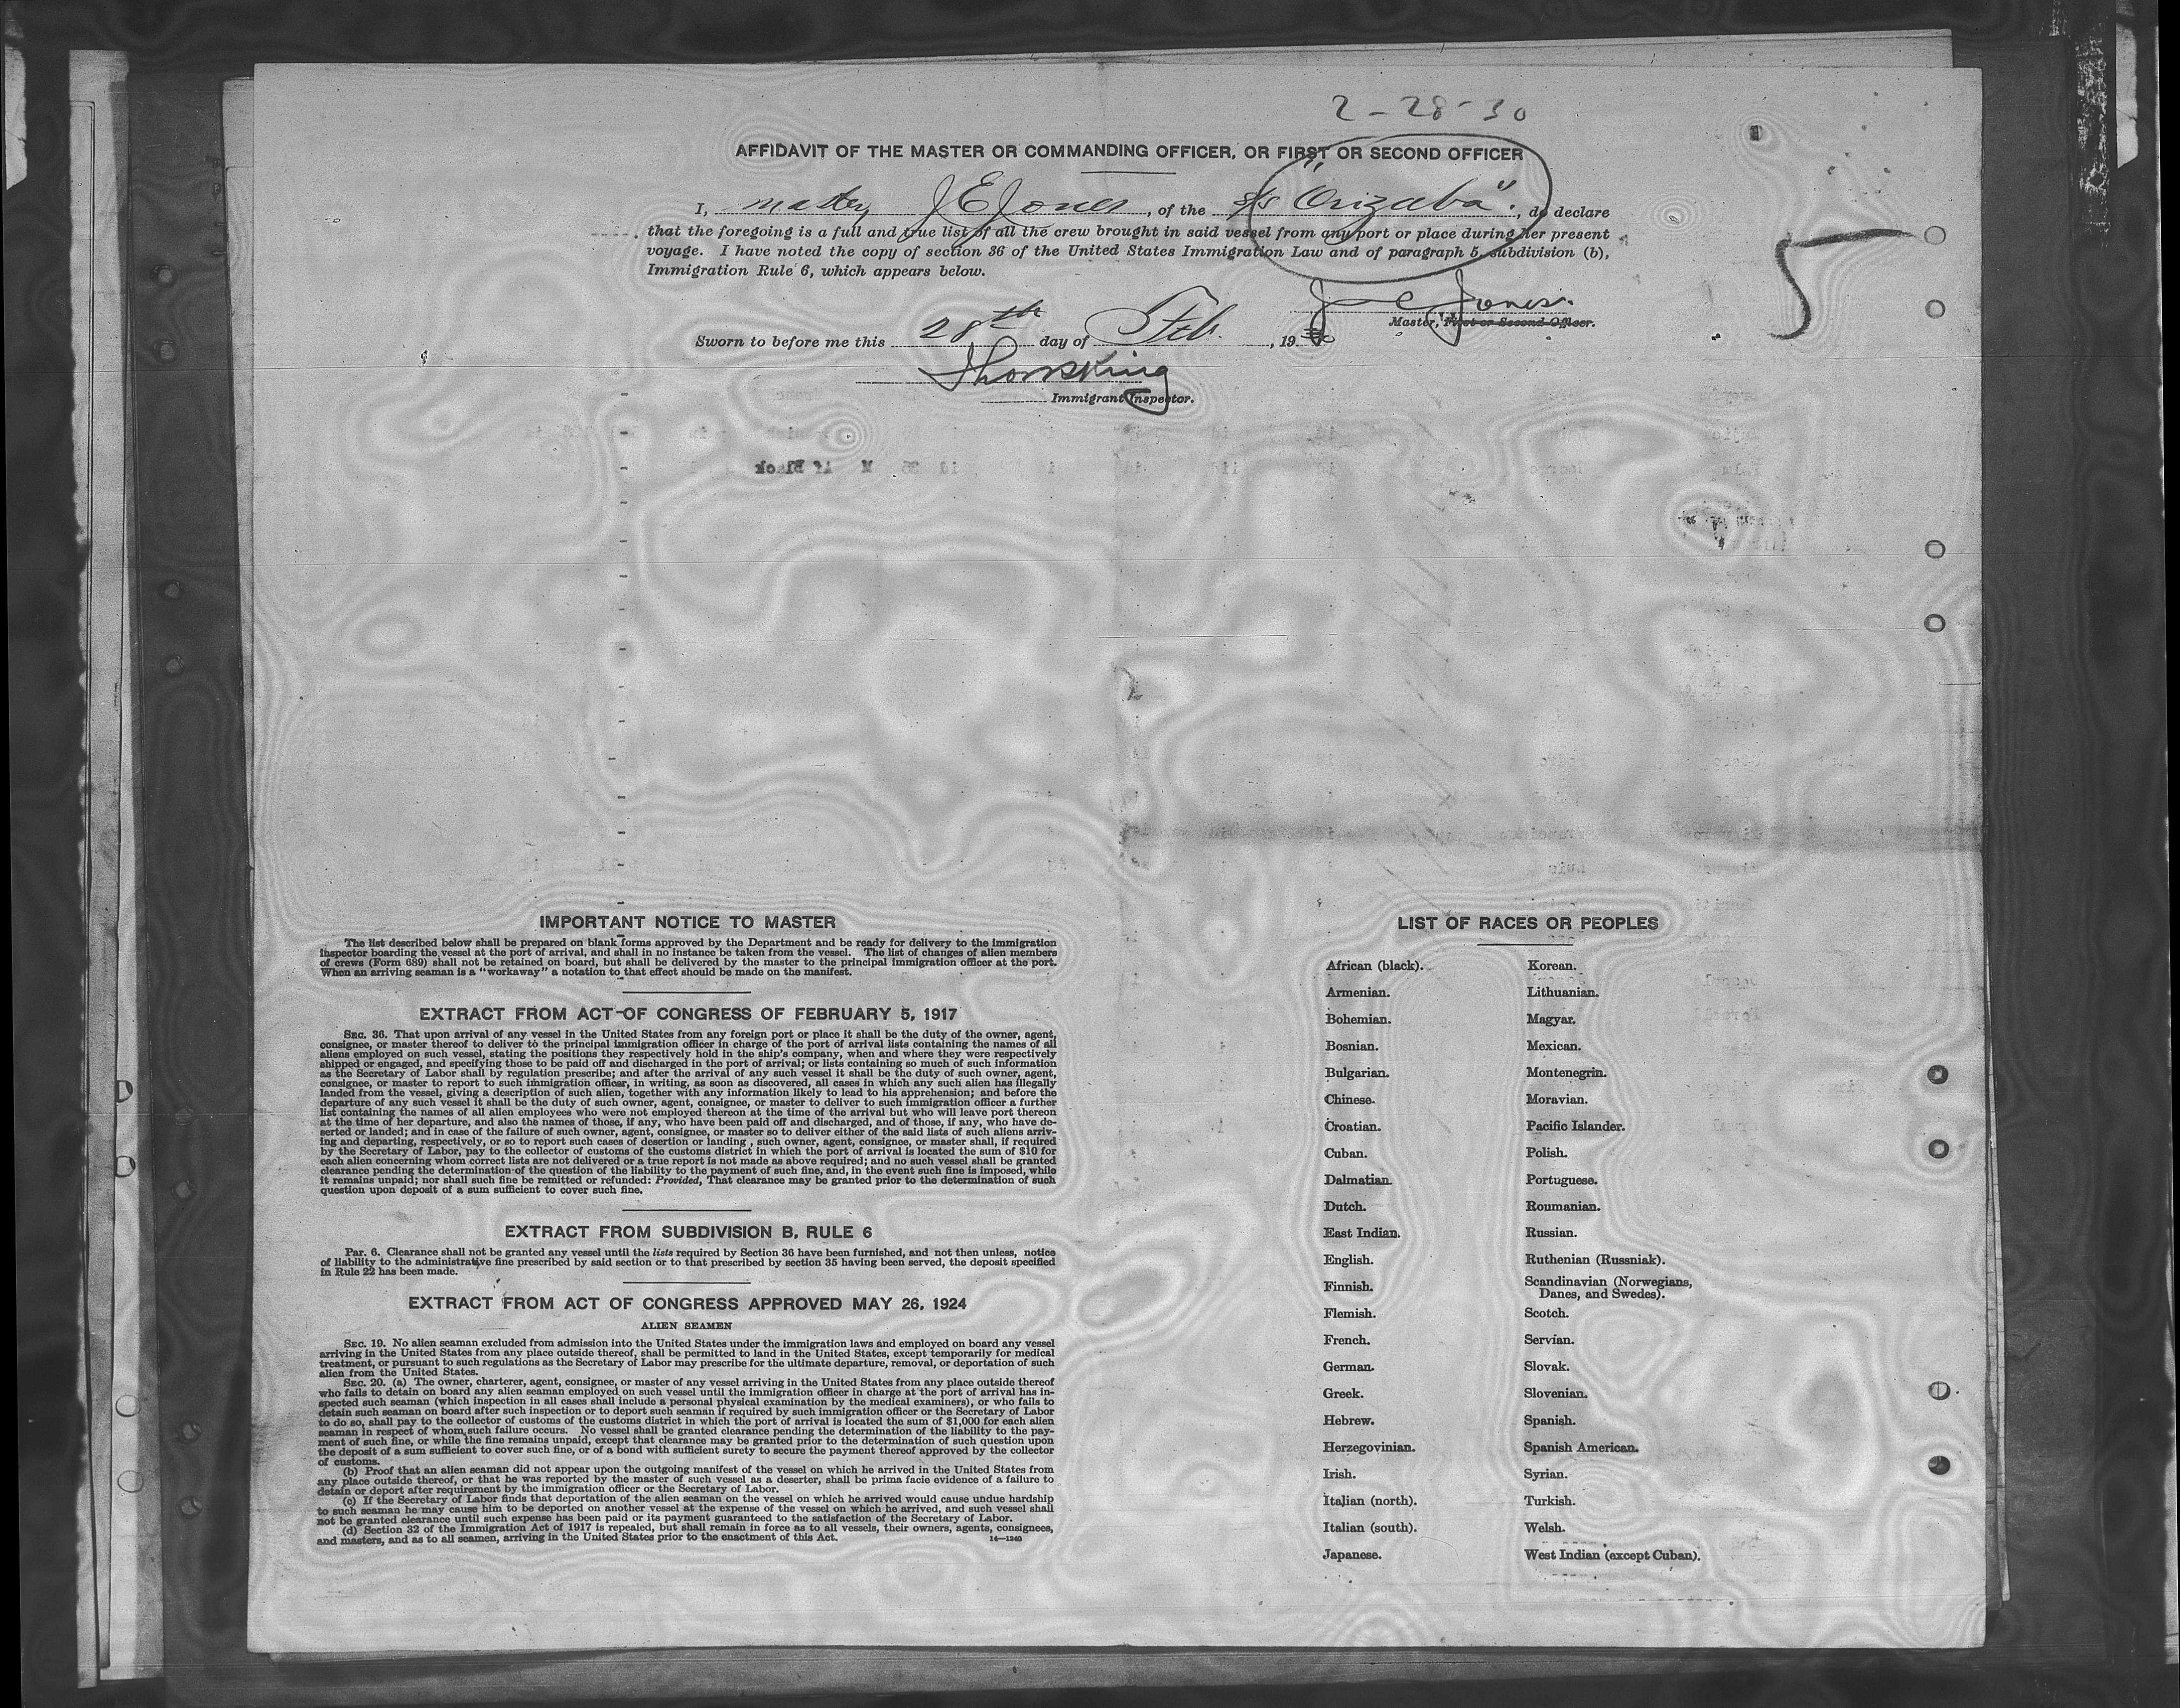 2-28-30
AFFIDAVIT OF THE MASTER OR COMMANDING OFFICER, OR FIRST OR SECOND OFFICER
I, master J E Jones, of the s/s "Orizaba"., do declare
that the foregoing is a full and true list of all the crew brought in said vessel from any port or place during her present
voyage. I have noted the copy of section 36 of the United States Immigration Law and of paragraph 5, subdivision (b),
Immigration Rule 6, which appears below.
J E Jones.
Master, First or Second Officer.
Sworn to before me this 28th day of Feb., 19
Immigrant Inspector.
5
Af Black
IMPORTANT NOTICE TO MASTER
The list described below shall be prepared on blank forms approved by the Department and be ready for delivery to the immigration
inspector boarding the vessel at the port of arrival, and shall in no instance be taken from the vessel. The list of changes of alien members
of crews (Form 689) shall not be retained on board, but shall be delivered by the master to the principal immigration officer at the port.
When an arriving seaman is a "workaway" a notation to that effect should be made on the manifest.
EXTRACT FROM ACT OF CONGRESS OF FEBRUARY 5, 1917
SEC. 36. That upon arrival of any vessel in the United States from any foreign port or place it shall be the duty of the owner, agent,
consignee, or master thereof to deliver to the principal immigration officer in charge of the port of arrival lists containing the names of all
aliens employed on such vessel, stating the positions they respectively hold in the ship's company, when and where they were respectively
shipped or engaged, and specifying those to be paid off and discharged in the port of arrival; or lists containing so much of such information
as the Secretary of Labor shall by regulation prescribe; and after the arrival of any such vessel it shall be the duty of such owner, agent,
consignee, or master to report to such immigration officer, in writing, as soon as discovered, all cases in which any such alien has illegally
landed from the vessel, giving a description of such alien, together with any information likely to lead to his apprehension; and before the
departure of any such vessel it shall be the duty of such owner, agent, consignee, or master to deliver to such immigration officer a further
list containing the names of all alien employees who were not employed thereon at the time of the arrival but who will leave port thereon
at the time of her departure, and also the names of those, if any, who have been paid off and discharged, and of those, if any, who have de-
serted or landed; and in case of the failure of such owner, agent, consignee, or master so to deliver either of the said lists of such aliens arriv-
ing and departing, respectively, or so to report such cases of desertion or landing, such owner, agent, consignee, or master shall, if required
by the Secretary of Labor, pay to the collector of customs of the customs district in which the port of arrival is located the sum of $10 for
each alien concerning whom correct lists are not delivered or a true report is not made as above required; and no such vessel shall be granted
clearance pending the determination of the question of the liability to the payment of such fine, and, in the event such fine is imposed, while
it remains unpaid; nor shall such fine be remitted or refunded: Provided, That clearance may be granted prior to the determination of such
question upon deposit of a sum sufficient to cover such fine.
EXTRACT FROM SUBDIVISION B, RULE 6
Par. 6. Clearance shall not be granted any vessel until the lists required by Section 36 have been furnished, and not then unless, notice
of liability to the administrative fine prescribed by said section or to that prescribed by section 35 having been served, the deposit specified
in Rule 22 has been made.
EXTRACT FROM ACT OF CONGRESS APPROVED MAY 26, 1924
ALIEN SEAMEN
SEC. 19. No alien seaman excluded from admission into the United States under the immigration laws and employed on board any vessel
arriving in the United States from any place outside thereof, shall be permitted to land in the United States, except temporarily for medical
treatment, or pursuant to such regulations as the Secretary of Labor may prescribe for the ultimate departure, removal, or deportation of such
alien from the United States.
SEC. 20. (a) The owner, charterer, agent, consignee, or master of any vessel arriving in the United States from any place outside thereof
who fails to detain on board any alien seaman employed on such vessel until the immigration officer in charge at the port of arrival has in-
spected such seaman (which inspection in all cases shall include a personal physical examination by the medical examiners), or who fails to
detain such seaman on board after such inspection or to deport such seaman if required by such immigration officer or the Secretary of Labor
to do so, shall pay to the collector of customs of the customs district in which the port of arrival is located the sum of $1,000 for each alien
seaman in respect of whom such failure occurs. No vessel shall be granted clearance pending the determination of the liability to the pay-
ment of such fine, or while the fine remains unpaid, except that clearance may be granted prior to the determination of such question upon
the deposit of a sum sufficient to cover such fine, or of a bond with sufficient surety to secure the payment thereof approved by the collector
of customs.
(b) Proof that an alien seaman did not appear upon the outgoing manifest of the vessel on which he arrived in the United States from
any place outside thereof, or that he was reported by the master of such vessel as a deserter, shall be prima facie evidence of a failure to
detain or deport after requirement by the immigration officer or the Secretary of Labor.
(c) If the Secretary of Labor finds that deportation of the alien seaman on the vessel on which he arrived would cause undue hardship
to such seaman he may cause him to be deported on another vessel at the expense of the vessel on which he arrived, and such vessel shall
not be granted clearance until such expense has been paid or its payment guaranteed to the satisfaction of the Secretary of Labor.
(d) Section 32 of the Immigration Act of 1917 is repealed, but shall remain in force as to all vessels, their owners, agents, consignees,
and masters, and as to all seamen, arriving in the United States prior to the enactment of this Act.
14—1240
LIST OF RACES OR PEOPLES
African (black).
Armenian.
Bohemian.
Bosnian.
Bulgarian.
Chinese.
Croatian.
Cuban.
Dalmatian.
Dutch.
East Indian.
English.
Finnish.
Flemish.
French.
German.
Greek.
Hebrew.
Herzegovinian.
Irish.
Italian (north).
Italian (south).
Japanese.
Korean.
Lithuanian.
Magyar.
Mexican.
Montenegrin.
Moravian.
Pacific Islander.
Polish.
Portuguese.
Roumanian.
Russian.
Ruthenian (Russniak).
Scandinavian (Norwegians,
Danes, and Swedes).
Scotch.
Servian.
Slovak.
Slovenian.
Spanish.
Spanish American.
Syrian.
Turkish.
Welsh.
West Indian (except Cuban).